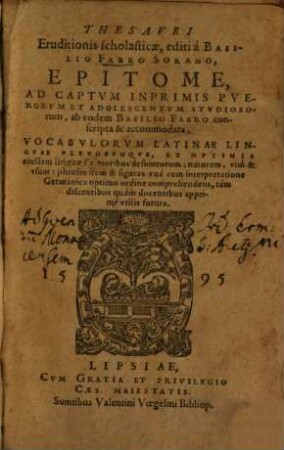 THESAVRI
Eruditionis scholasticæ, editi à BASI-
LIO FABRO SORANO,
EPITOME,
AD CAPTVM INPRIMIS PVE-
RORVM ET ADOLESCENTVM STVDIOSO-
rum, ab eodem BASILIO FABRO con-
scripta & accommodata,
VOCABVLORVM LATINAE LIN-
GVAE PLERORVMQVE, EX OPTIMIS
eiusdem linguæ autoribus desumtorum, naturam, vim &
vsum: phrases item & figuras vnà cum interpretatione
Germanica optimo ordine comprehendens, tàm
discentibus quàm docentibus appri-
mè vtilis futura.
Ad
Mona
censem
Ad
15 95
LIPSIAE,
CVM GRATIA ET PRIVILEGIO
CAES. MAIESTATIS.
Sumtibus Valentini Vœgelini Bibliop.